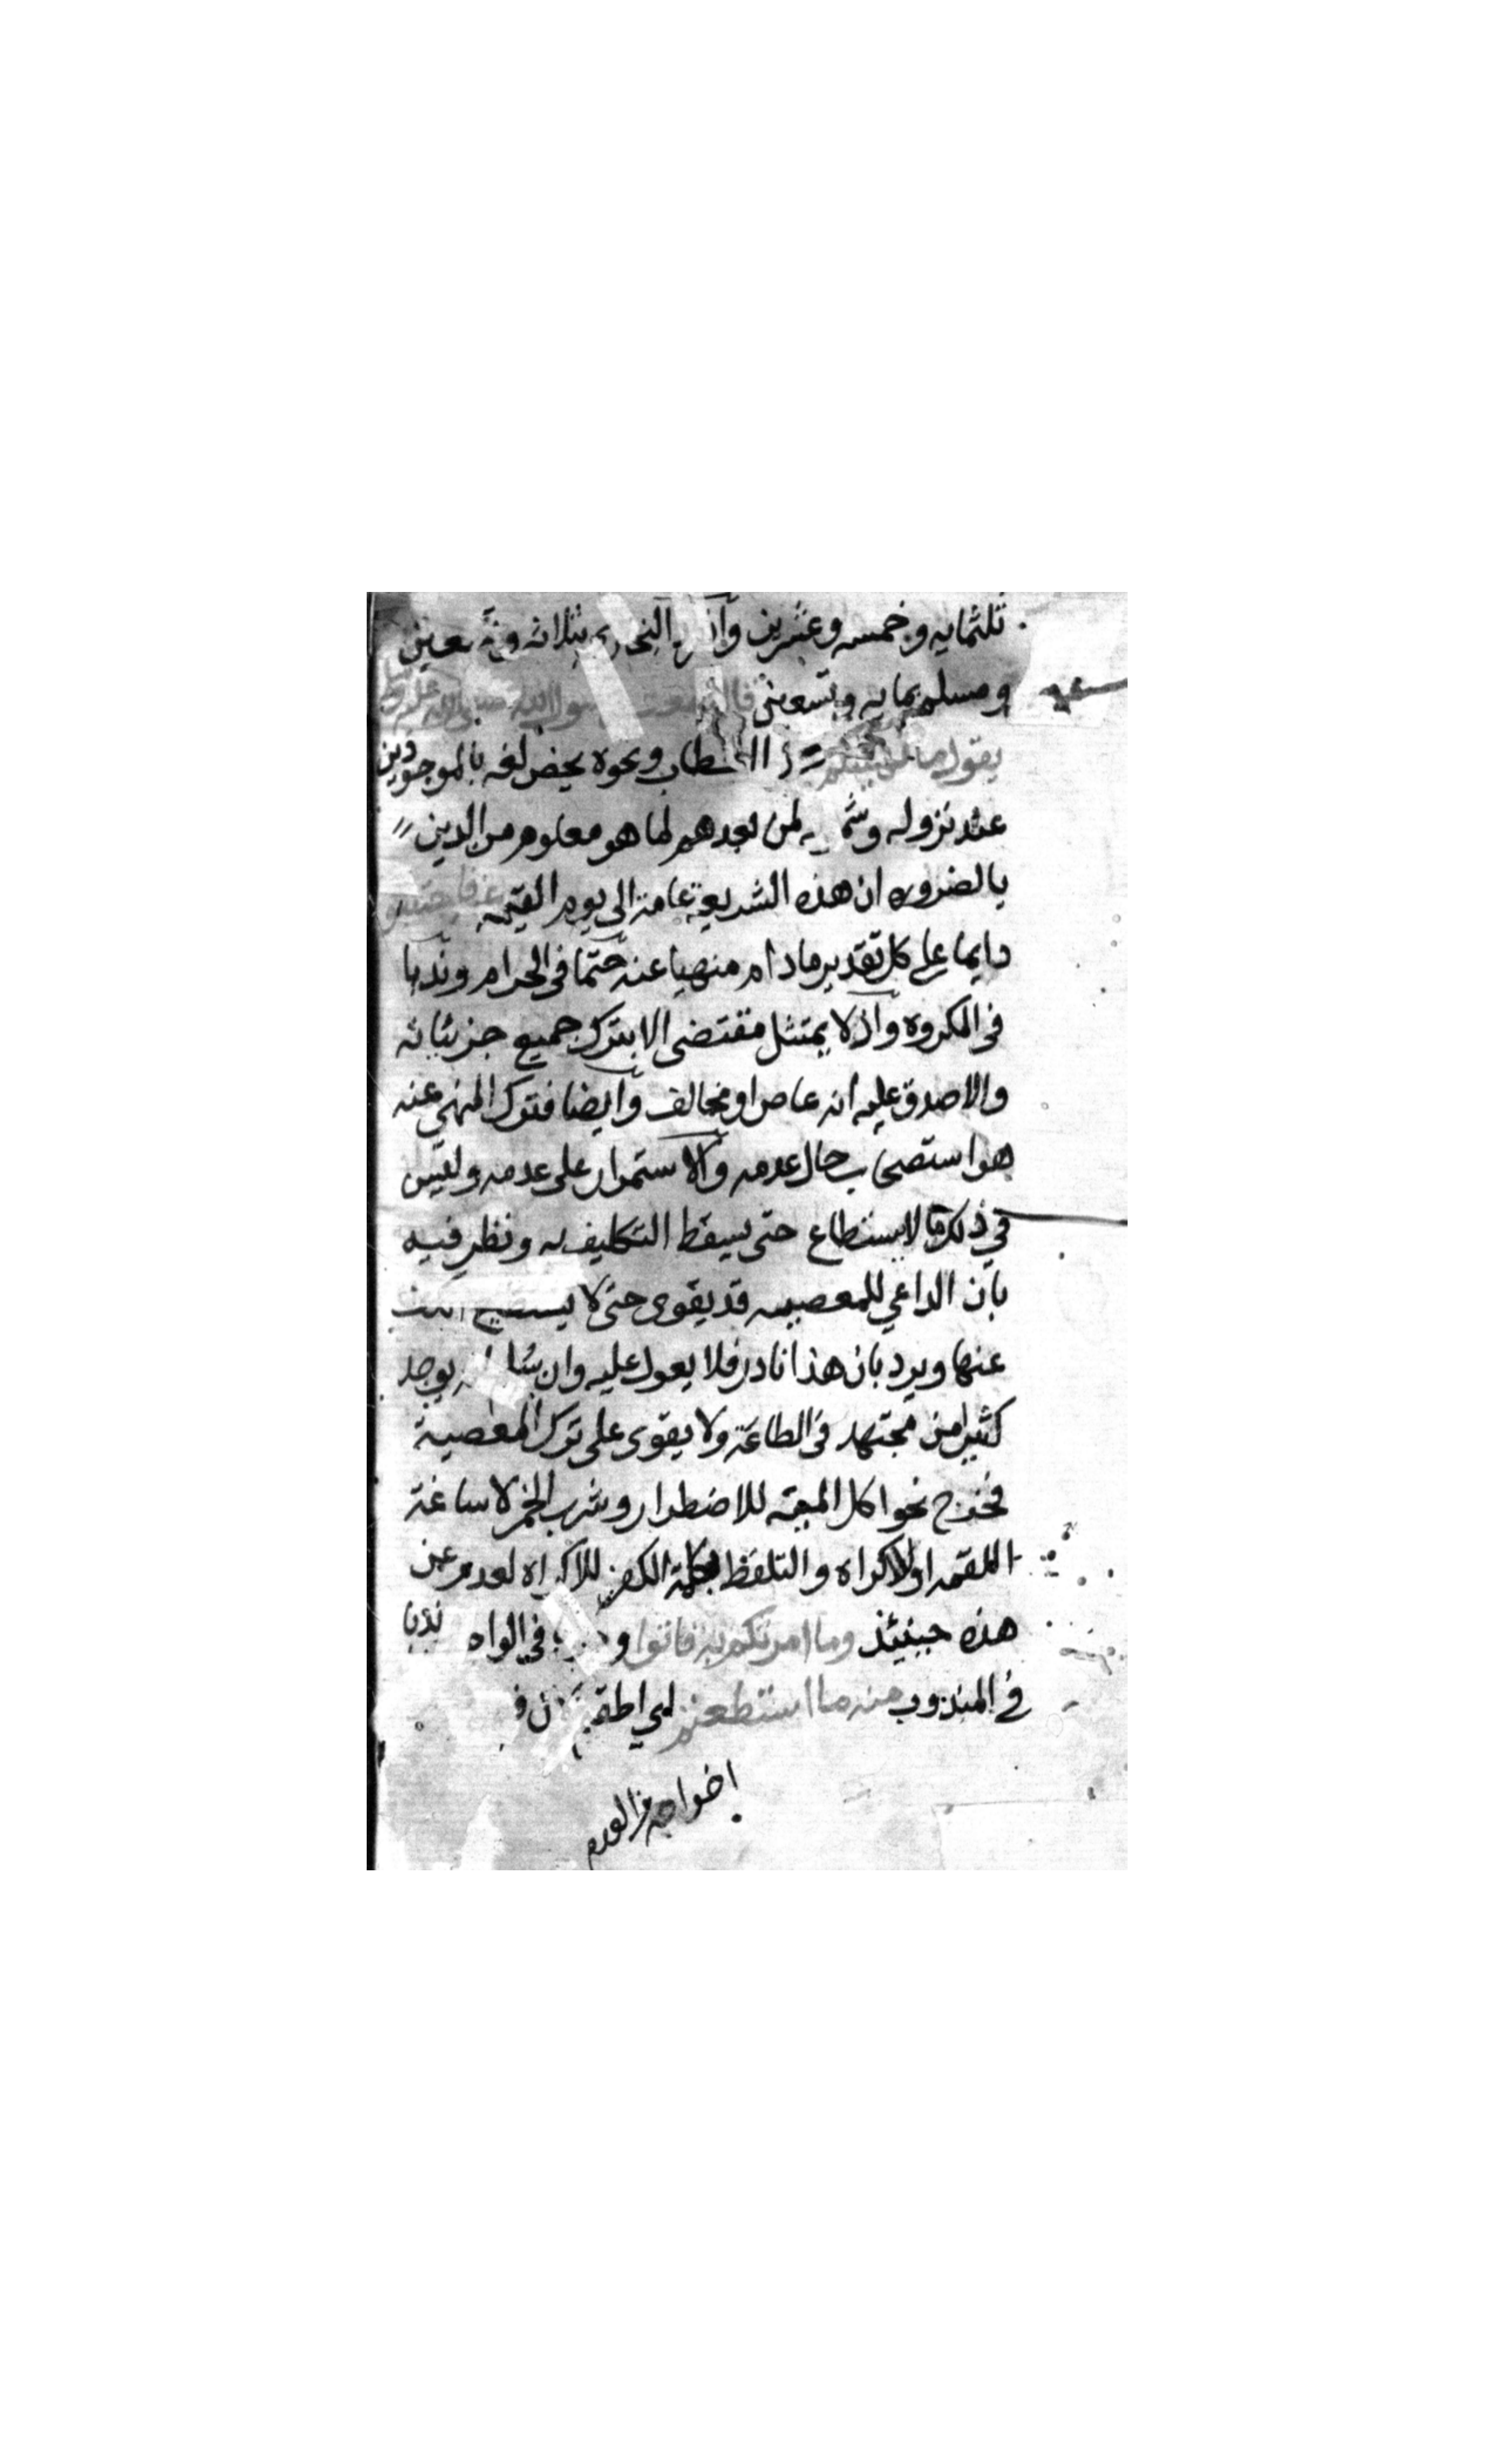 ثلثمايه وخمسه وعشرين وانفرد البخاري بثلاثه وتسعين
ومسلم بمايه وتسعين قال سمعت رسول الله صلى الله عليه وسلم
يقول ما نهيتكم الخطاب ونحوه يختص لغه بالموجودين
عند نزوله وشموله لمن بعدهم لما هو معلوم من الدين
بالضروره ان هذه الشريعة عامة الى يوم القيمه عنه فاجتنبوه
دايما على كل تقدير مادام منهيا عنه حتما في الحرام وندبا
في المكروه واذ لا يمتثل مقتضى الا بترك جميع جزئياته
والا صدق عليه انه عاص او مخالف وايضا فترك المنهي عنه
هو استصحاب حال عدمه والاستمرار على عدمه وليس
في ذلك ما لا يستطاع حتى يسقط التكليف به ونظر فيه
بان الداعي للمعصيه قد يقوى حتى لا يستطيع الكف
عنها ويرد بان هذا نادر فلا يعول عليه وان يوجد
كثيرا من مجتهد في الطاعة ولا يقوى على ترك المعصية
فخرج نحو اكل الميته للاضطرار وشرب الخمر لاساغة
اللقمه او للاكراه والتلفظ بكلمة الكفر للاكراه لعدم عن
هذه حينئذ وما امرتكم به فاتوا وجوبا في الواجب ندبا
في المندوب منه ما استطعتم اي اطقتم لان